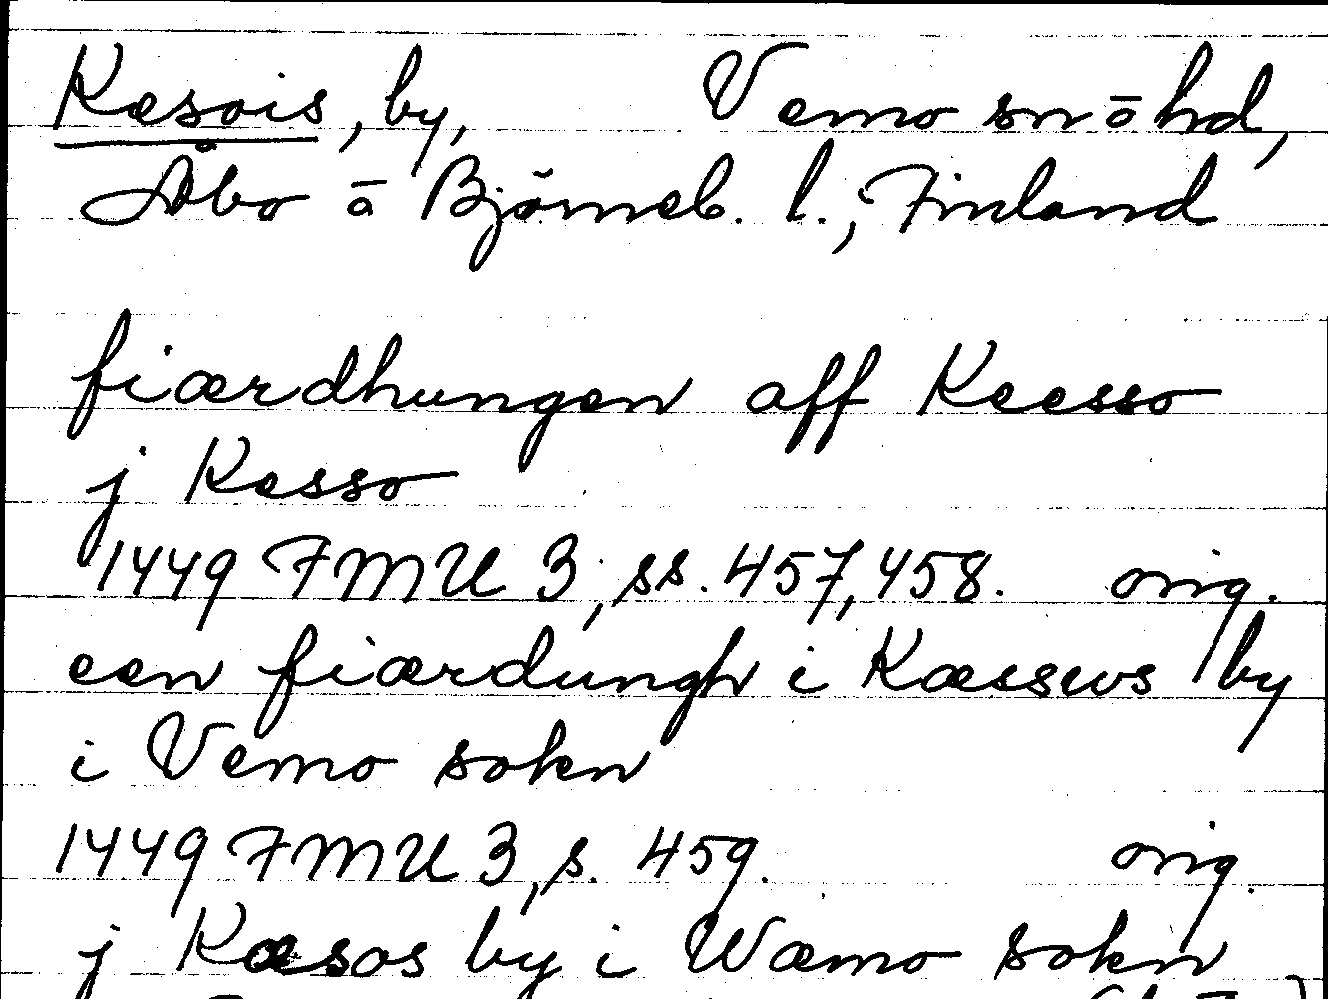 Kæsois, by, Vemo sn o hd,
Åbo o Björneb. l., Finland
fiærdhungen aff Keesso
j Kesso
1449 FMU 3, ss. 457, 458. orig.
een fiærdungh i Kæssews by
i Vemo sokn
1449 FMU 3, s. 459. orig.
j Kæsos by i Wæmo sokn